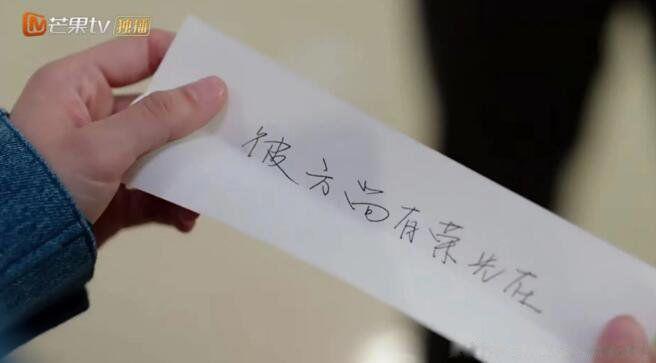 芒果tv 独播
彼方尚有荣光在